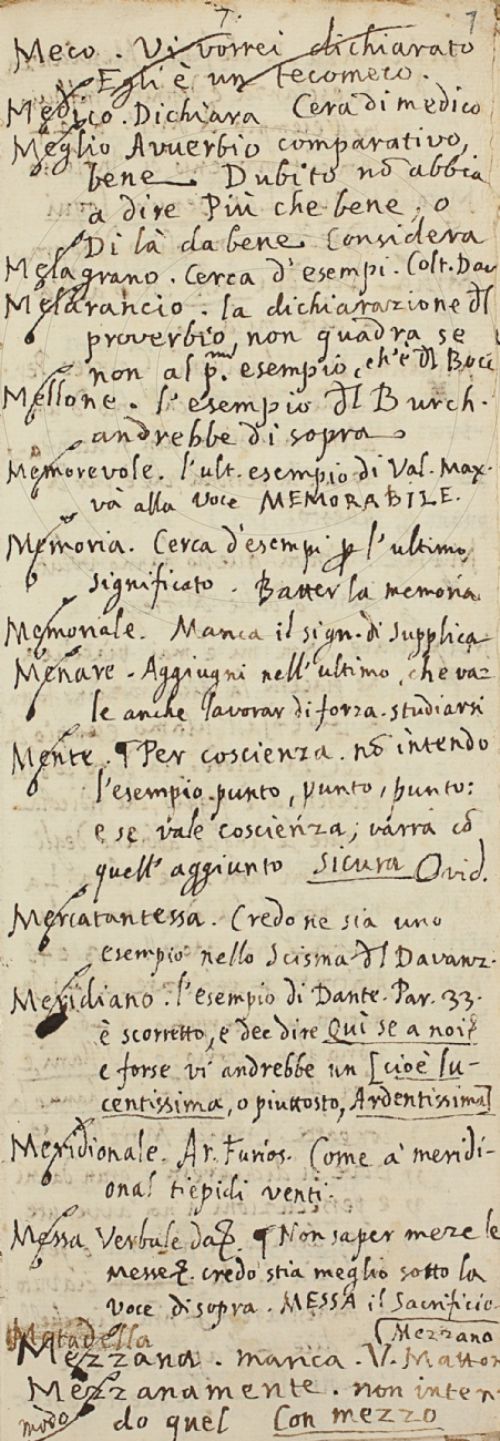 7. 7
Meco. Vi vorrei dichiarato
Egli è un tecomeco.
Medico. Dichiara Cera di medico
Meglio Avverbio comparativo,
bene. Dubito nõ abbia
a dire Più che bene, o
Di là da bene. Considera
Melagrano. Cerca d'esempi. Colt. Dav
Melarancio. la dichiarazione dl
proverbio, non quadra se
non al pm̃. esempio, ch'è dl Bocc
Mellone. l'esempio dl Burch.
andrebbe di sopra
Memorevole. l'ult. esempio di Val. Max.
và alla voce MEMORABILE.
Memoria. Cerca d'esempi ꝑ l'ultimo
significato. Batter la memoria
Memoriale. Manca il sign. di supplica
Menare. Aggiugni nell'ultimo, che va-
le anche lavorar di forza. studiarsi
Mente. ¶ Per coscienza. nõ intendo
l'esempio. punto, punto, punto:
e se vale coscienza, varrà cõ
quell' aggiunto sicura Ovid.
Mercatantessa. Credo ne sia uno
esempio nello Scisma dl Davanz.
Meridiano. l'esempio di Dante. Par. 33.
è scorretto, e dee dire Qui se a noi
e forse vi andrebbe un [cioè lu-
centissima, o piuttosto, Ardentissima]
Meridionale. Ar. Furios. Come a' meridi-
onal tiepidi venti.
Messa Verbale da ¶ Non saper mezze le
messe. credo stia meglio sotto la
voce di sopra. MESSA il Sacrificio.
Metadella
Mezzano
Mezzana. manca. V. Matton
Mezzanamente. non inten
do quel Con mezzo
modo